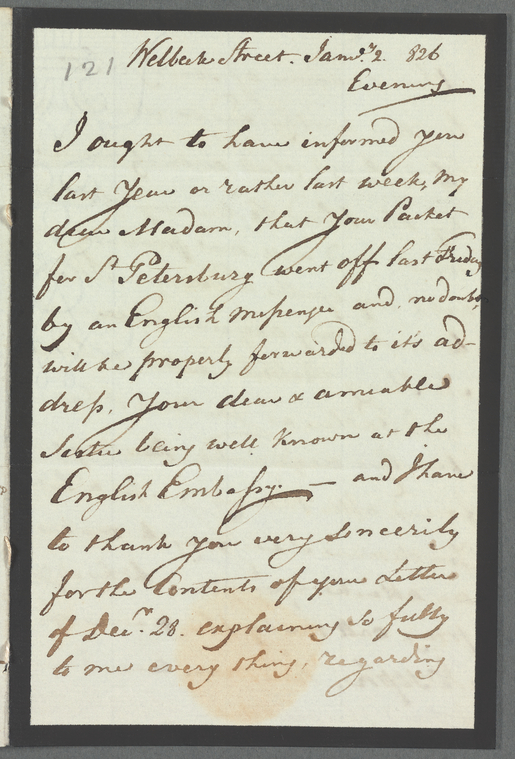 121 Welbeck Street. Jany. 2. 826
Evening
I ought to have informed you
last Year or rather last week, My
dear Madam, that Your Packet
for St Petersburg went off last Friday
by an English Messenger and no doubt,
will be properly forwarded to it's ad-
dress, Your dear & amiable
Sister being well known at the
English Embassy. — and I have
to thank you very sincerely
for the Contents of your Letter
of Decr. 28. explaining so fully
to me every thing, regarding